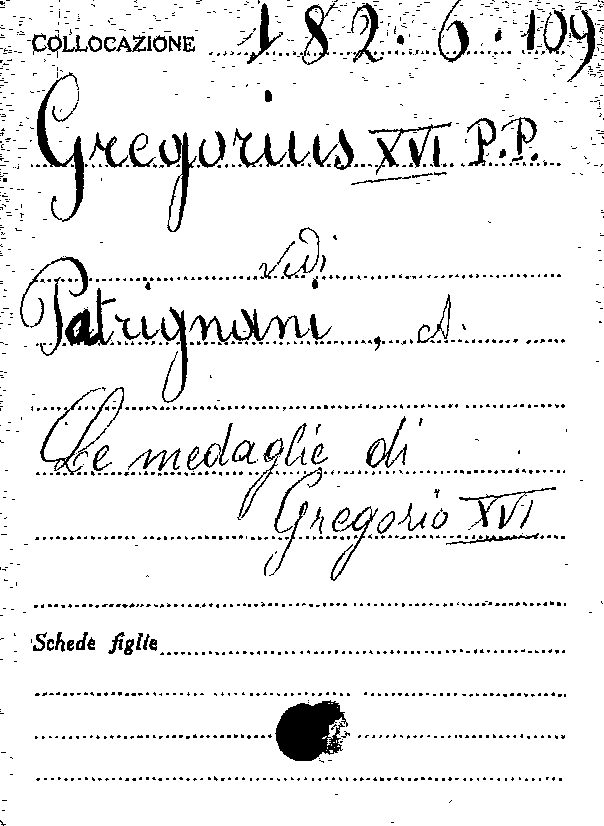 COLLOCAZIONE 182.6.109
Gregorius XVI P.P.
vedi
Patrignani, A.
Le medaglie di
Gregorio XVI
Schede figlie